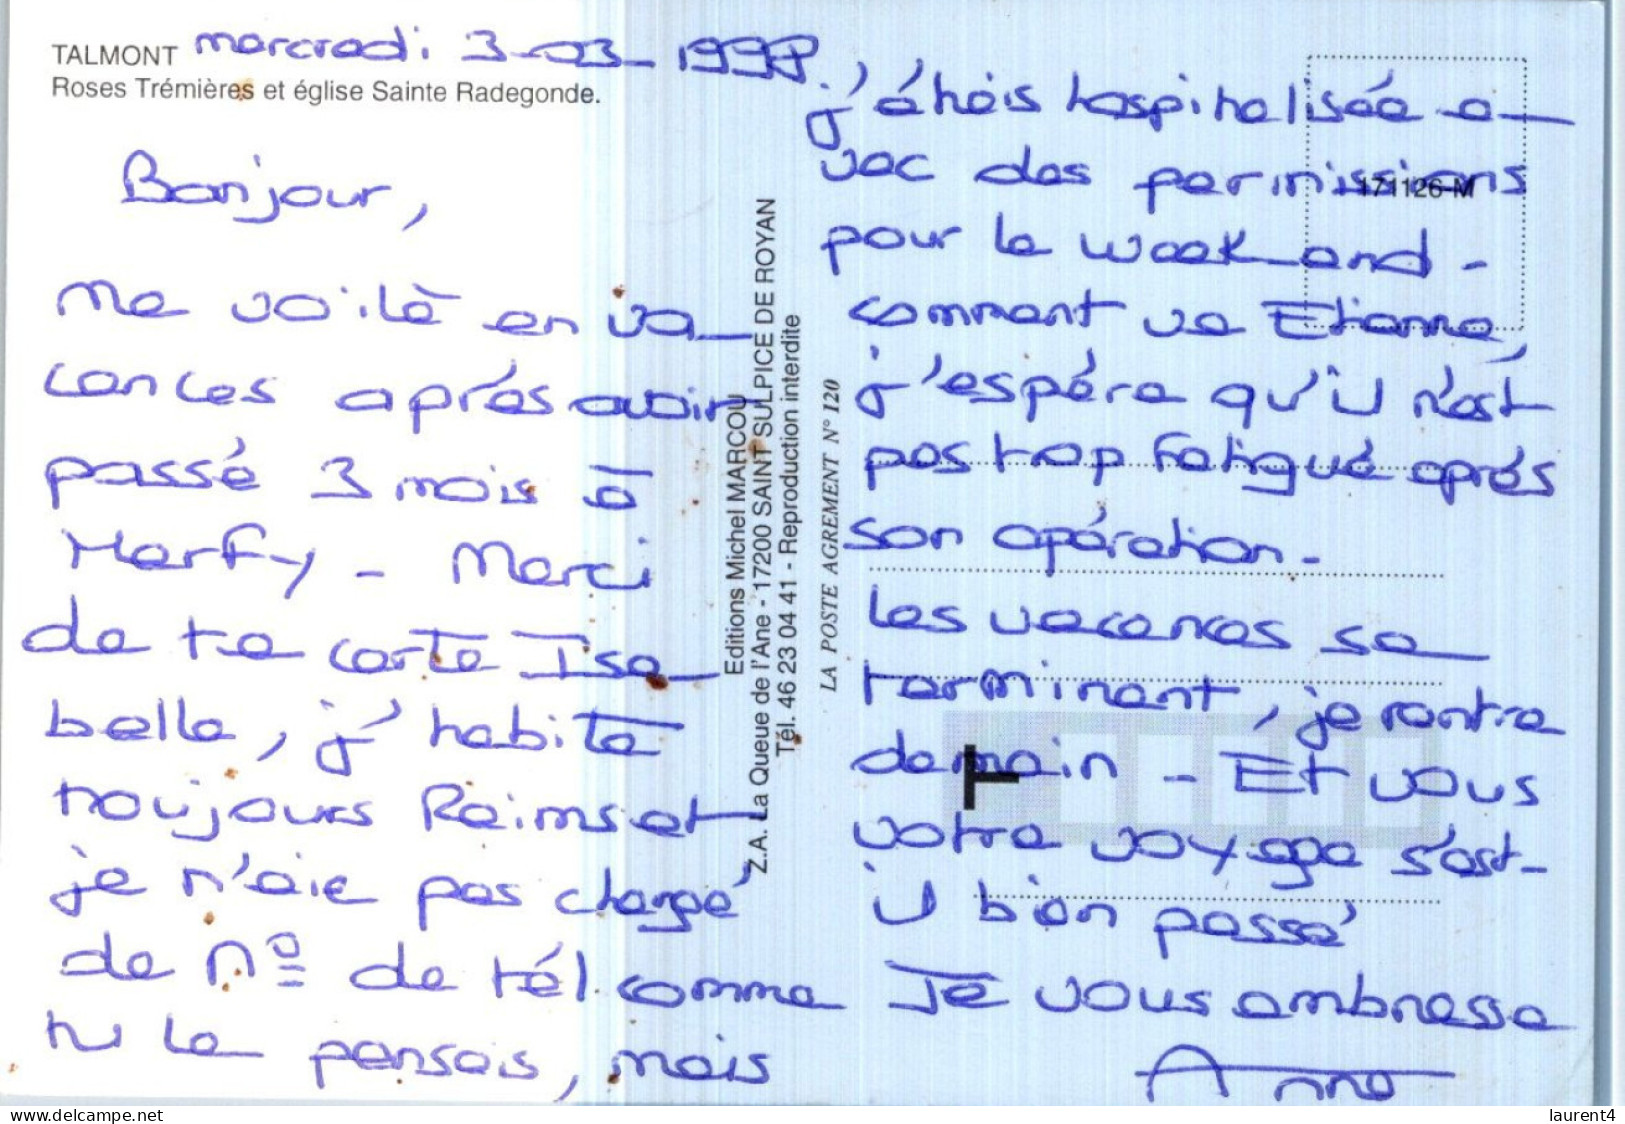 TALMONT
Roses Trémières et église Sainte Radegonde.
mercredi 3-03-1998
Bonjour,
me voilà en va_
cances après avoir
passé 3 mois à
Herfy - Merci
de ta carte Isa_
belle, j'habite
toujours Reims et
je n'aie pas changé
de nº de tél comme
tu le pensais, mais
j'étais hospitalisée a_
vec des permissions
pour le week end -
comment va Etienne,
j'espère qu'il n'est
pas trop fatigué après
son opération -
les vacances se
terminent, je rentre
demain - Et vous
votre voyage s'est-
il bien passé
Je vous embrasse
Anne
Editions Michel MARCOU
Z.A. La Queue de l'Ane - 17200 SAINT SULPICE DE ROYAN
Tél. 46 23 04 41 - Reproduction interdite
LA POSTE AGREMENT N° 120
171126-M
T
laurent4